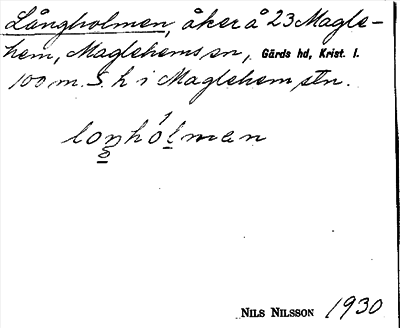 Långholmen, åker å 23 Magle-
hem, Maglehems sn, Gärds hd, Krist. l.
100 m. S. h i Maglehem stn.
loŋhòlmen
NILS NILSSON 1930